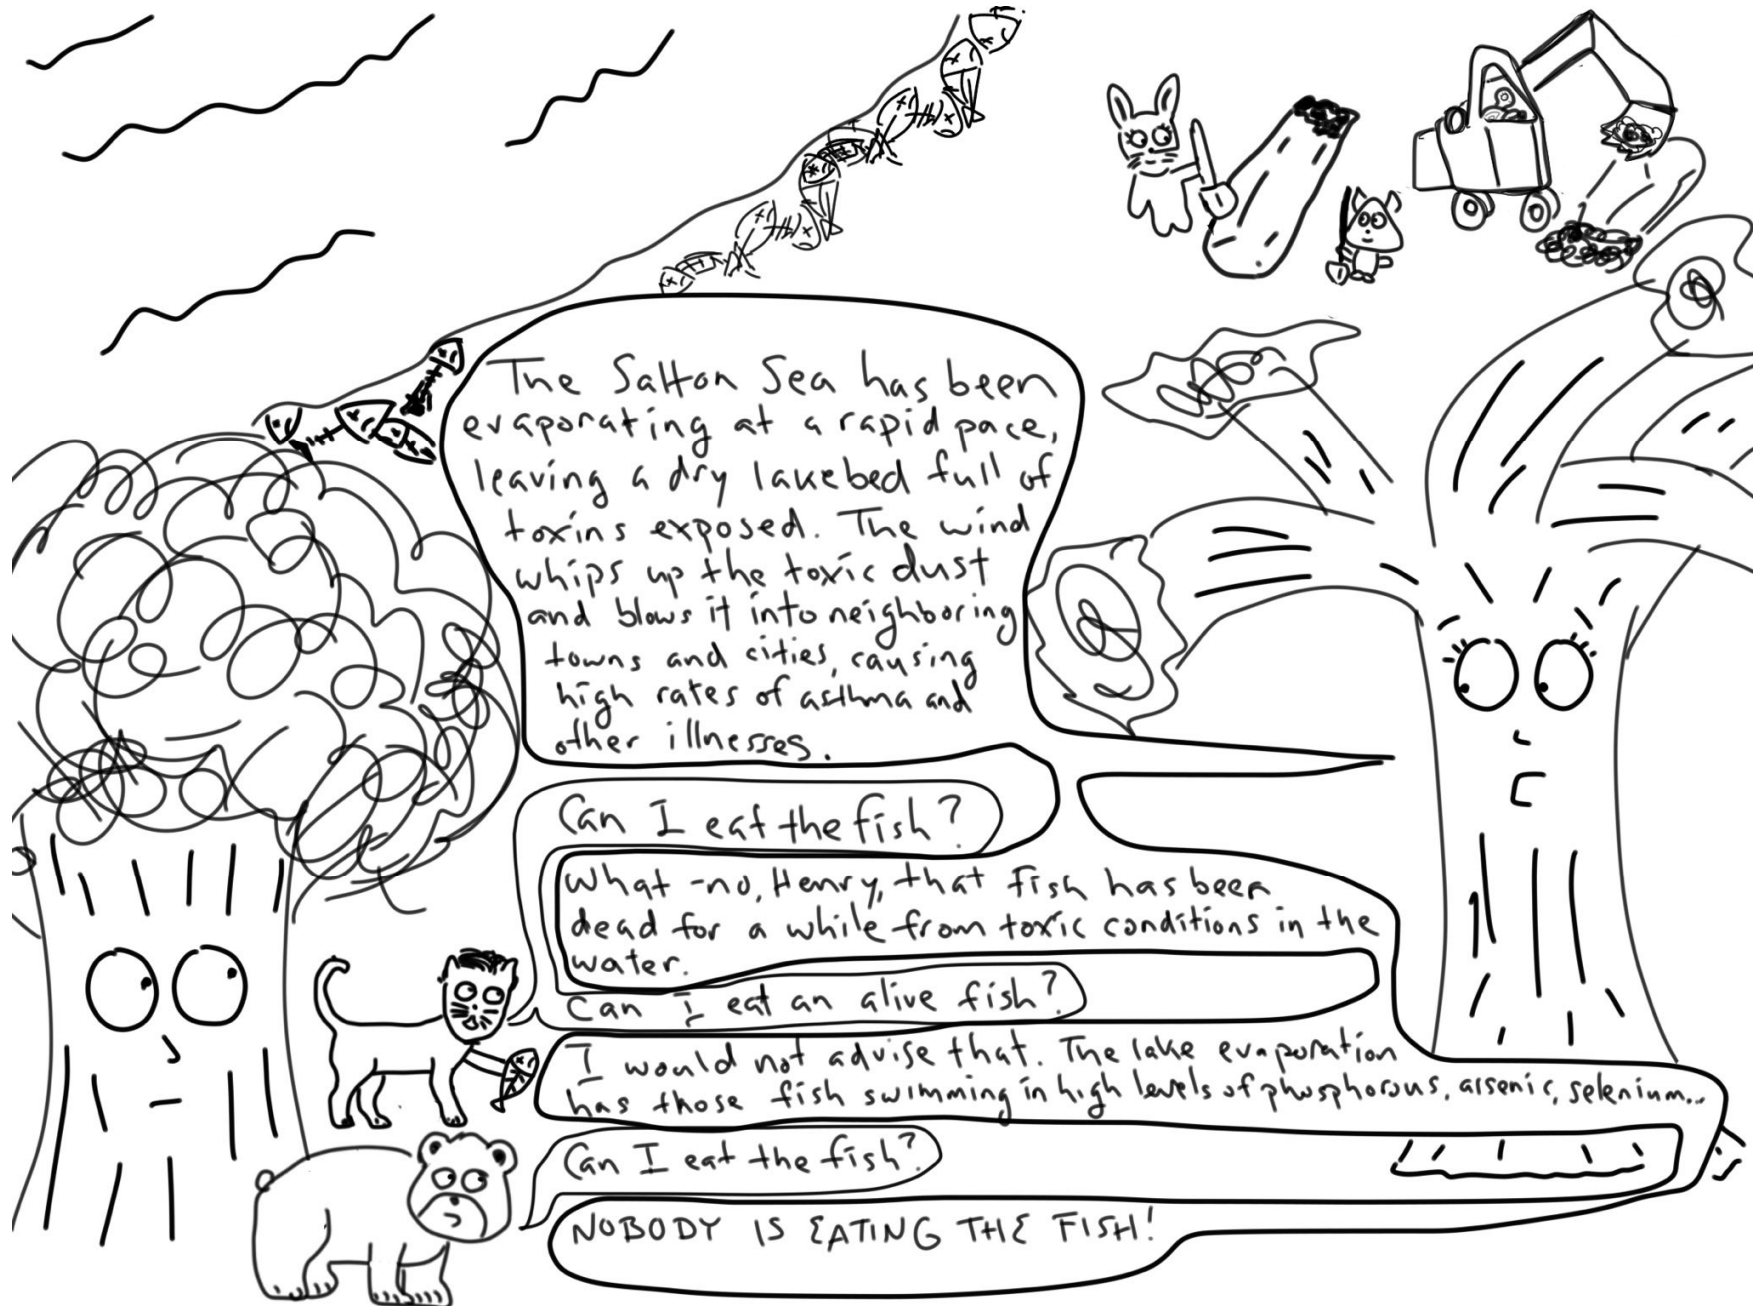 The Salton Sea has been
evaporating at a rapid pace,
leaving a dry lakebed full of
toxins exposed. The wind
whips up the toxic dust
and blows it into neighboring
towns and cities, causing
high rates of asthma and
other illnesses.
Can I eat the fish?
What - no, Henry, that fish has been
dead for a while from toxic conditions in the
water.
Can I eat an alive fish?
I would not advise that. The lake evaporation
has those fish swimming in high levels of phosphorous, arsenic, selenium...
Can I eat the fish?
NOBODY IS EATING THE FISH!